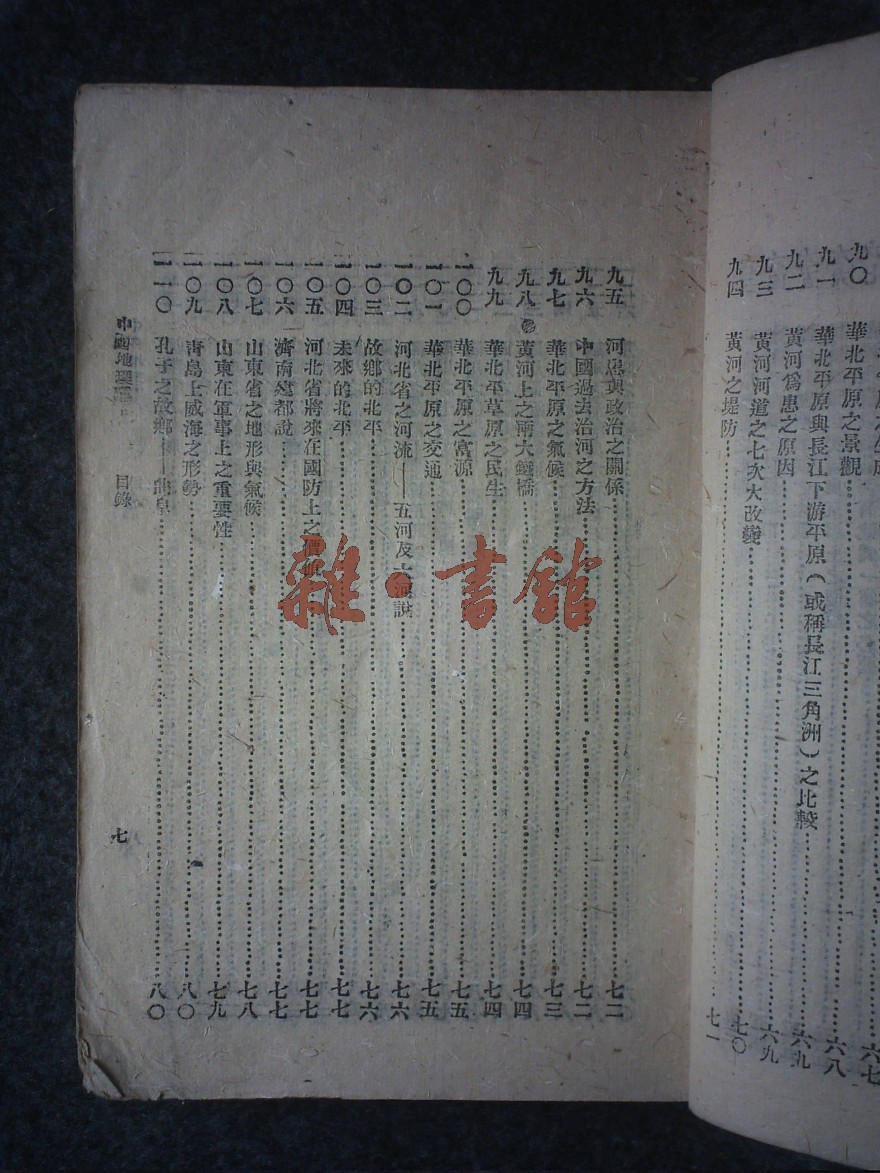 九〇 華北平原之景觀 六七
九一 華北平原與長江下游平原(或稱長江三角洲)之比較 六八
九二 黃河爲患之原因 六九
九三 黃河河道之七次大改變 六九
九四 黃河之堤防 七〇
七一
九五 河患與政治之關係 七二
九六 中國過去治河之方法 七二
九七 華北平原之氣候 七三
九八 黃河上之兩大鐵橋 七四
九九 華北平草原之民生 七四
一〇〇 華北平原之富源 七五
一〇一 華北平原之交通 七五
一〇二 河北省之河流——五河及 河說 七六
一〇三 故鄉的北平 七六
一〇四 未來的北平 七七
一〇五 河北省將來在國防上之價 七七
一〇六 濟南建都說 七七
一〇七 山東省之地形與氣候 七八
一〇八 山東在軍事上之重要性 七九
一〇九 靑島上威海之形勢 八〇
一一〇 孔子之故鄉—— 阜 八〇
中國地理 目錄 七
雜·書館